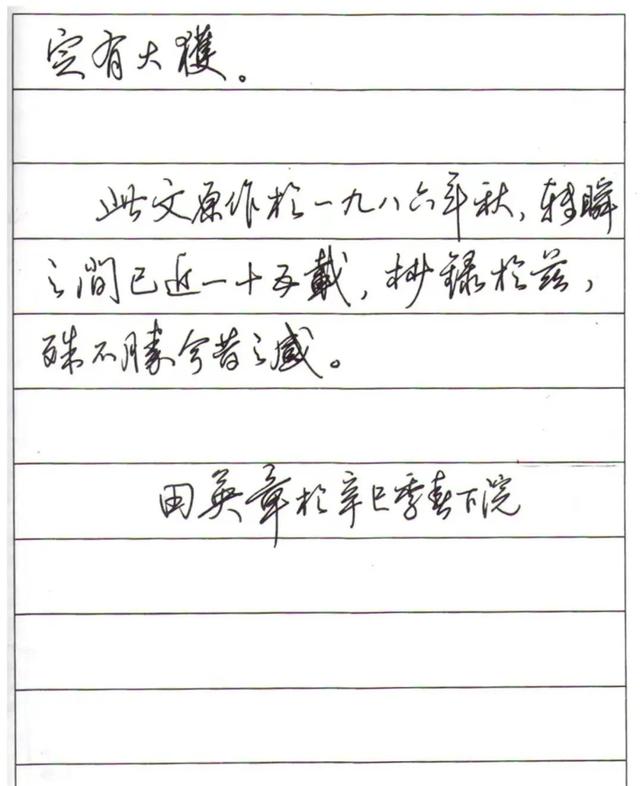 定有大獲。
此文原作於一九八六年秋，轉瞬
之間已近一十五載，抄錄於兹，
殊不勝今昔之感。
田英章於辛巳季春下浣